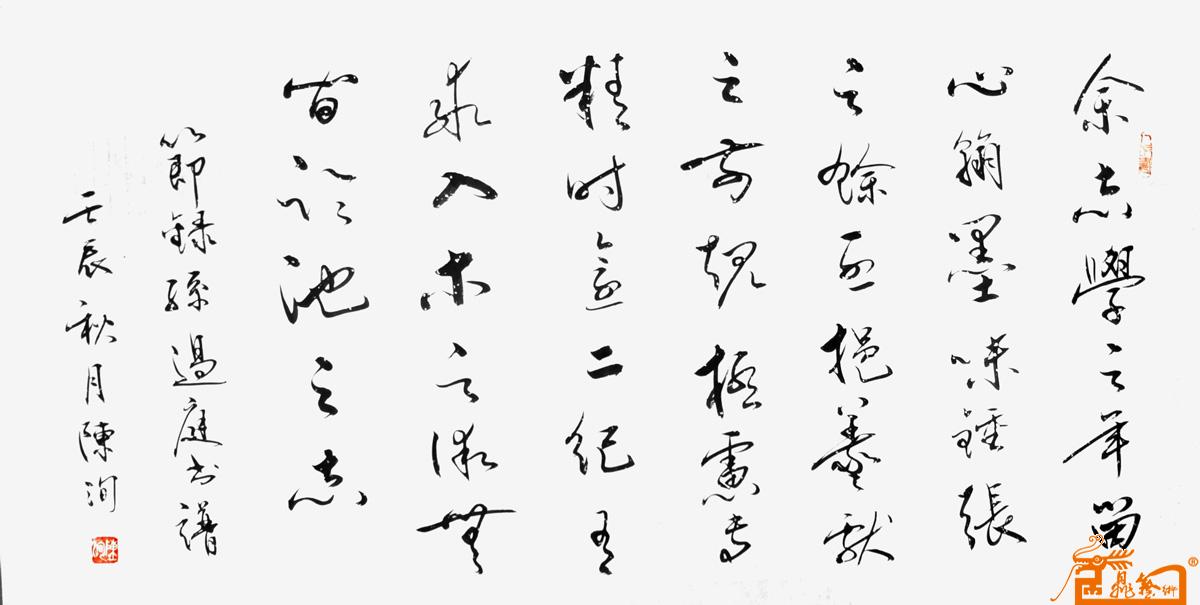 余志學之年留
心翰墨味鍾張
之餘烈挹羲獻
之前規極慮專
精時逾二紀有
乖入木之術無
間臨池之志
節錄孫過庭書譜
壬辰秋月陳洵